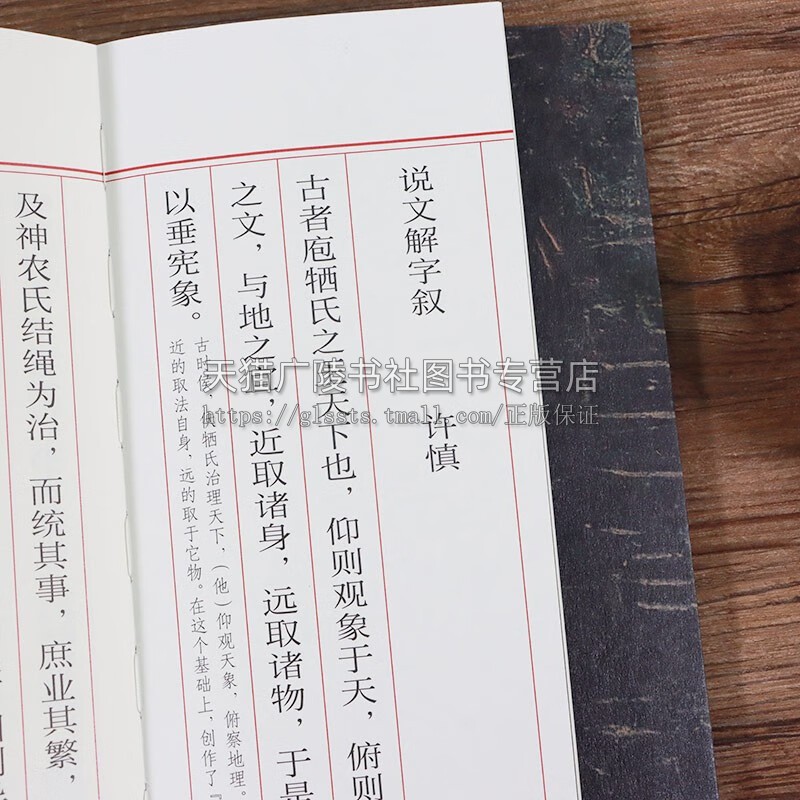 说文解字叙
许慎
古者庖牺氏之王天下也，仰则观象于天，俯则
之文，与地之宜，近取诸身，远取诸物，于是
以垂宪象。
古时候，庖牺氏治理天下，（他）仰观天象，俯察地理。
近的取法自身，远的取于它物。在这个基础上，创作了『
及神农氏结绳为治，而统其事，庶业其繁，
天猫广陵书社图书专营店
https://glssts.tmall.com/正版保证